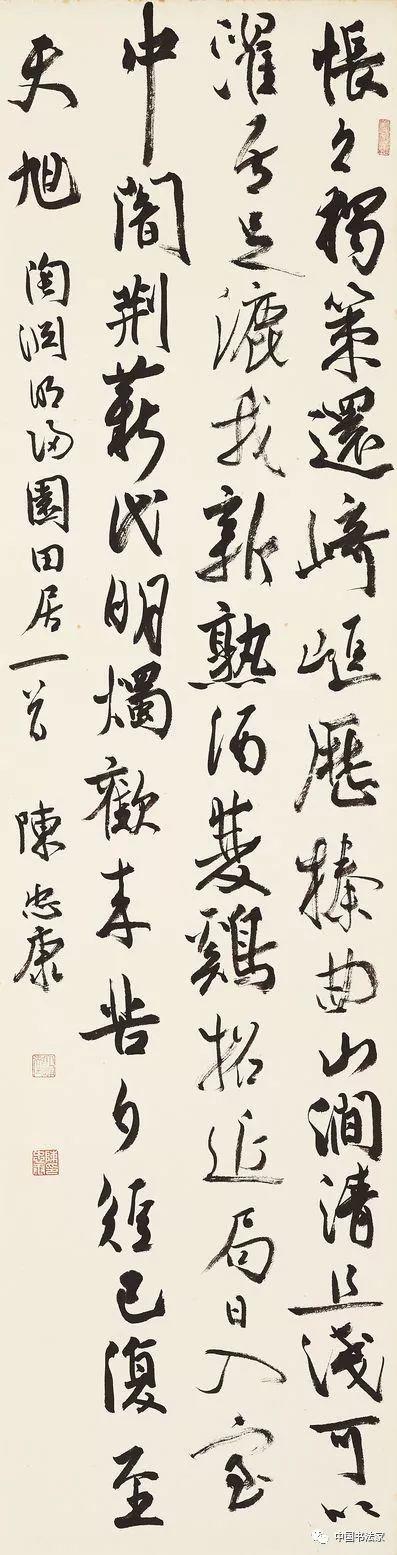 悵々獨策還崎嶇歷榛曲山澗清且淺可以
濯吾足漉我新熟酒雙雞招近局日入室
中闇荊薪代明燭歡来苦夕短已復至
天旭 陶淵明歸園田居一首 陳忠康
中国书法家